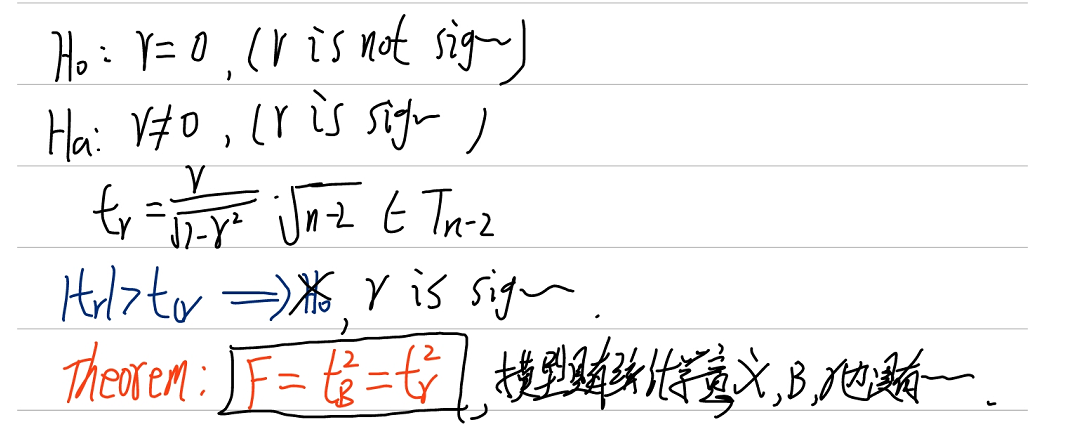 H₀: r = 0, (r is not sig~)
Ha: r ≠ 0, (r is sig~ )
tᵣ = r/√(1-r²) · √(n-2) ∈ Tₙ₋₂
|tr| > tα ⟹ H₀, r is sig~.
Theorem: F = t_B² = t_r², 模型具有统计学意义, B, r也具有一.